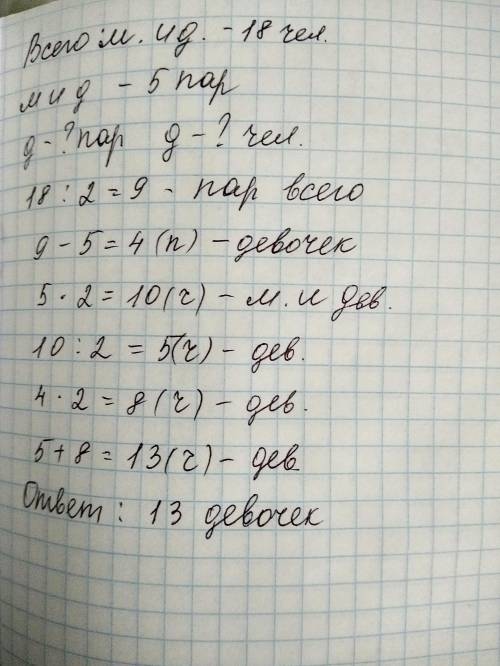 Всего м. и д. - 18 чел.
м и д - 5 пар
д - ? пар д - ? чел.
18 : 2 = 9 - пар всего
9 - 5 = 4 (п) - девочек
5 · 2 = 10 (ч) - м. и дев.
10 : 2 = 5 (ч) - дев.
4 · 2 = 8 (ч) - дев.
5 + 8 = 13 (ч) - дев
Ответ : 13 девочек